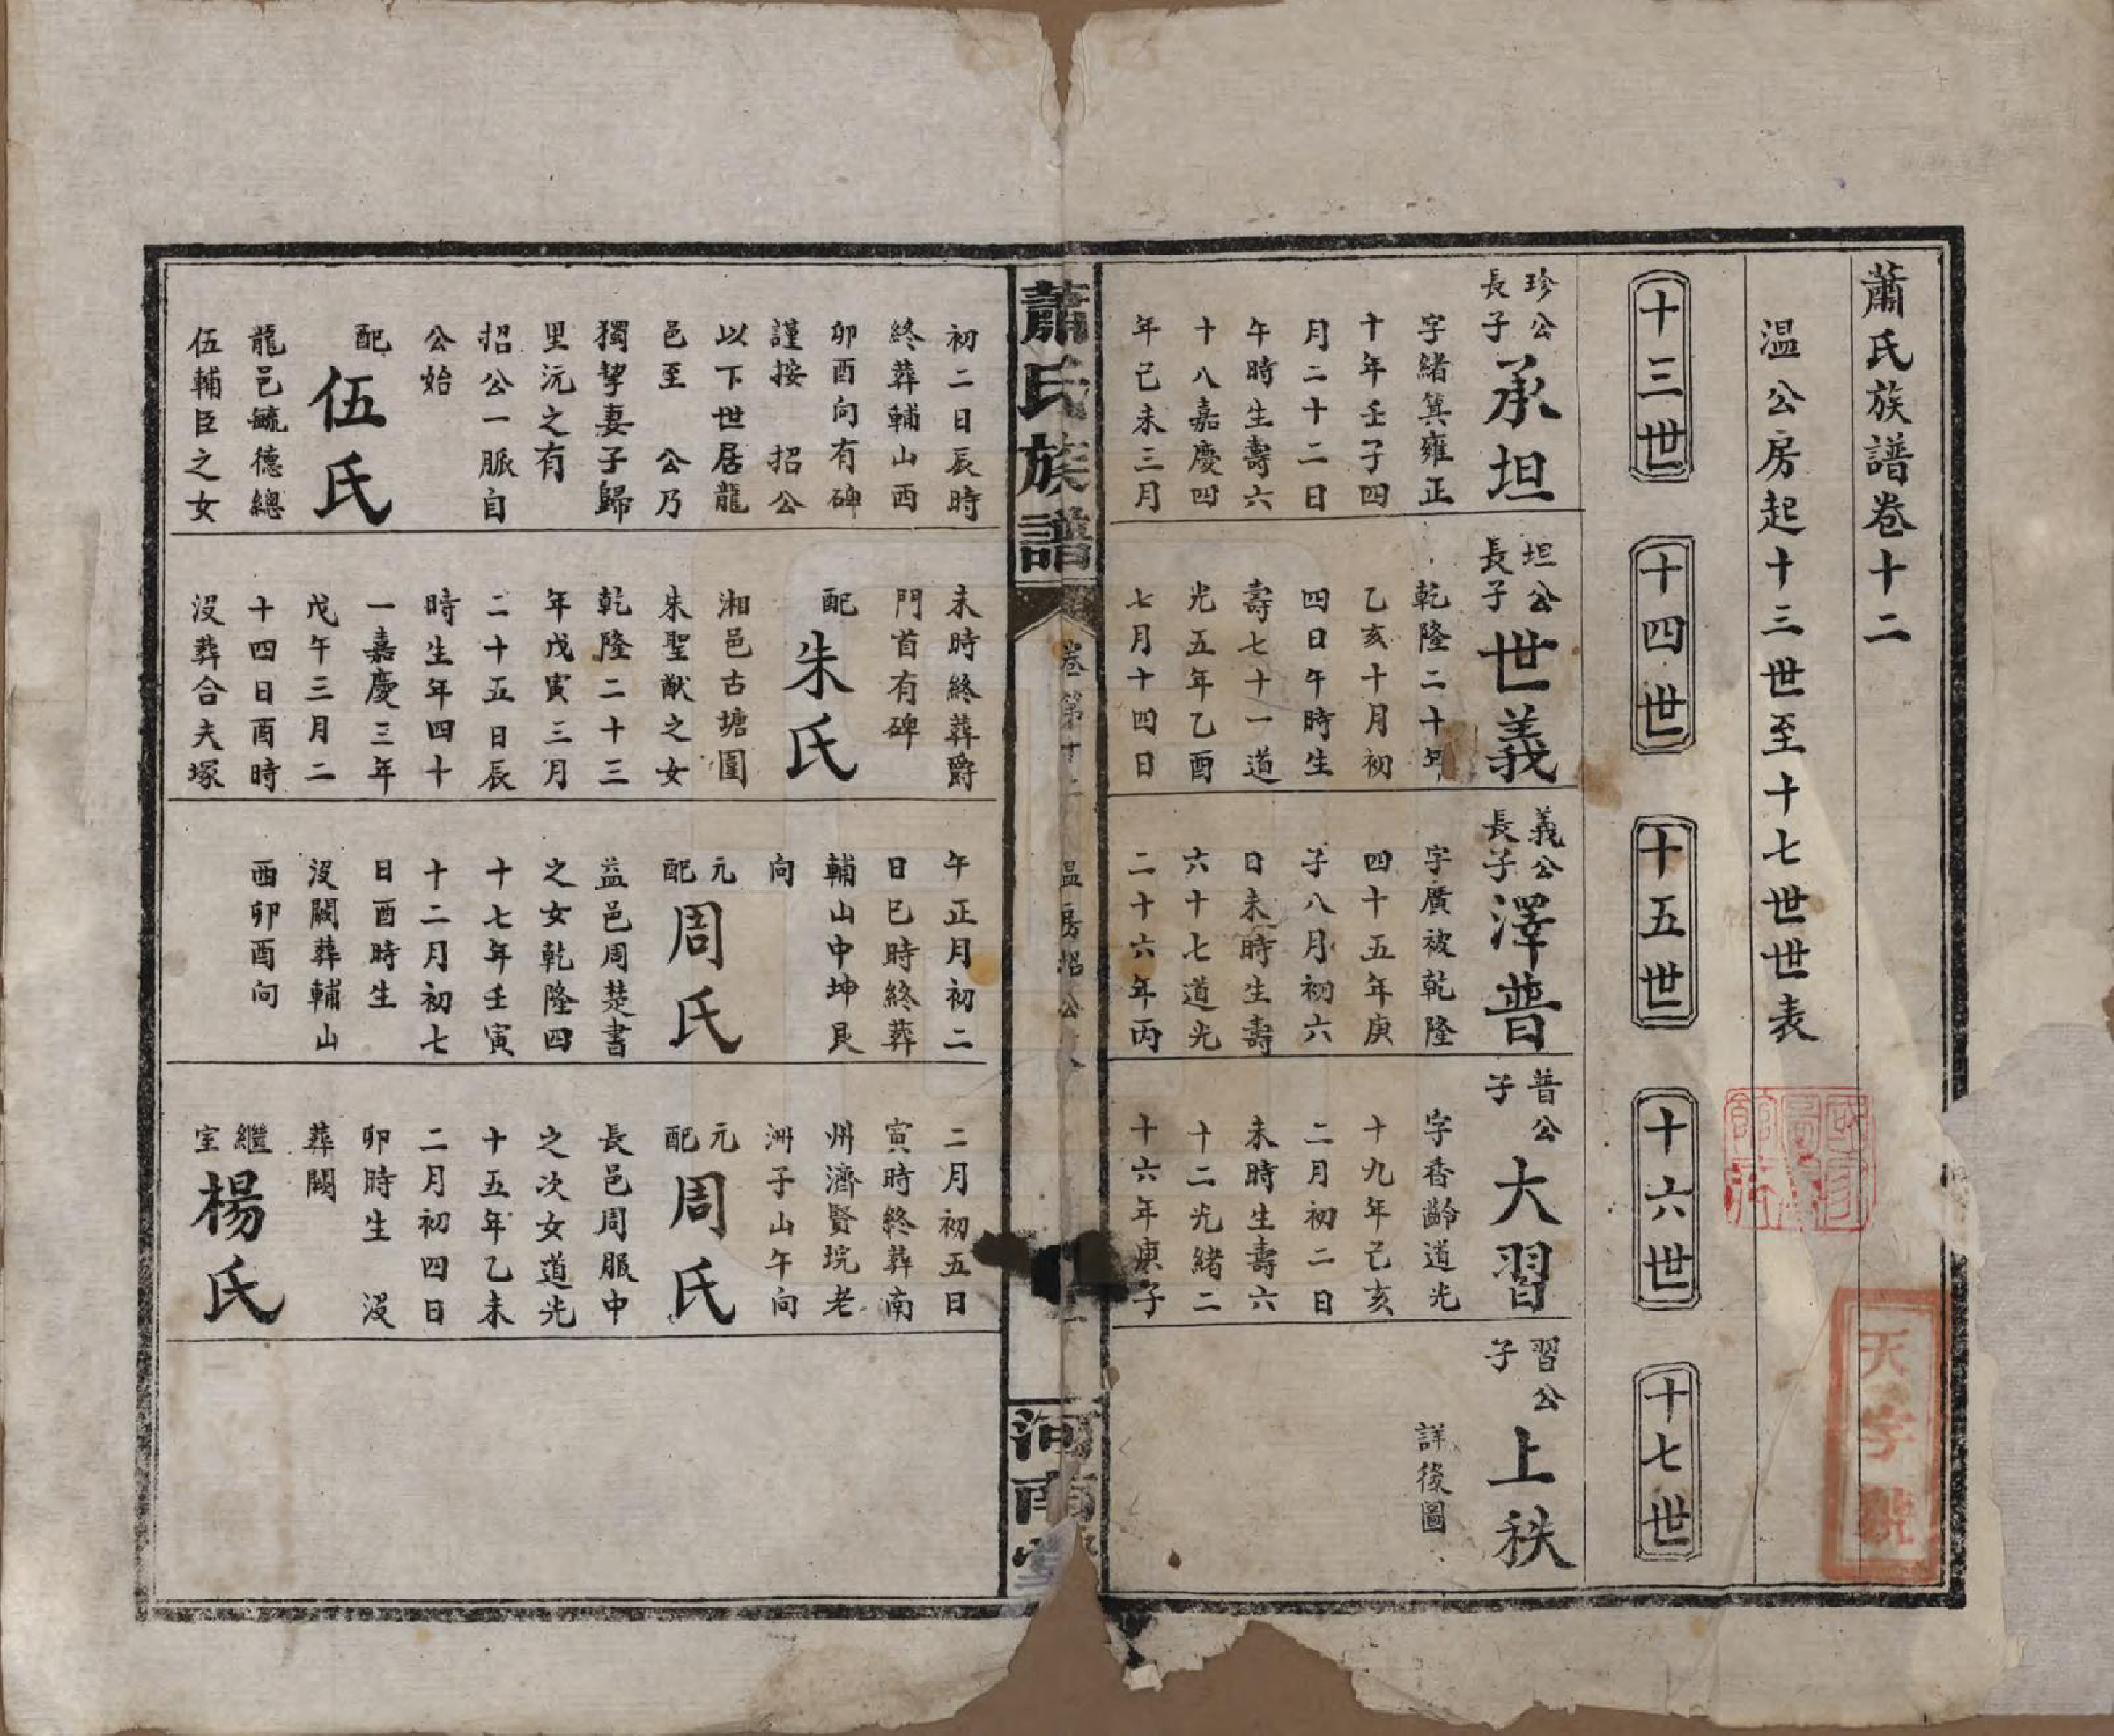 蕭氏族譜卷十二
温公房起十三世至十七世世表
十三世
十四世
十五世
十六世
十七世
珍公
長子
承坦
字緒箕雍正
十年壬子四
月二十二日
午時生壽六
十八嘉慶四
年己未三月
初二日辰時
終葬輔山酉
卯酉向有碑
謹按 招公
以下世居龍
邑至 公乃
獨挈妻子歸
里沅之有
招公一脈自
公始
配
伍氏
龍邑毓德總
伍輔臣之女
坦公
長子
世義
乾隆二十年
乙亥十月初
四日午時生
壽七十一道
光五年乙酉
七月十四日
未時終葬爵
門首有碑
配
朱氏
湘邑古塘圍
朱聖猷之女
乾隆二十三
年戊寅三月
二十五日辰
時生年四十
一嘉慶三年
戊午三月二
十四日酉時
沒葬合夫塚
義公
長子
澤普
字廣被乾隆
四十五年庚
子八月初六
日未時生壽
六十七道光
二十六年丙
午正月初二
日巳時終葬
輔山中坤艮
向
元
配
周氏
益邑周楚書
之女乾隆四
十七年壬寅
十二月初七
日酉時生
沒闕葬輔山
酉卯酉向
普公
子
大習
字香齡道光
十九年己亥
二月初二日
未時生壽六
十二光緒二
十六年庚子
二月初五日
寅時終葬南
州濟賢垸老
洲子山午向
元
配
周氏
長邑周服中
之次女道光
十五年乙未
二月初四日
卯時生 沒
葬闕
繼
室
楊氏
習公
子
上秩
詳後圖
蕭氏族譜
卷第十二
温房招公
河南堂
天字號